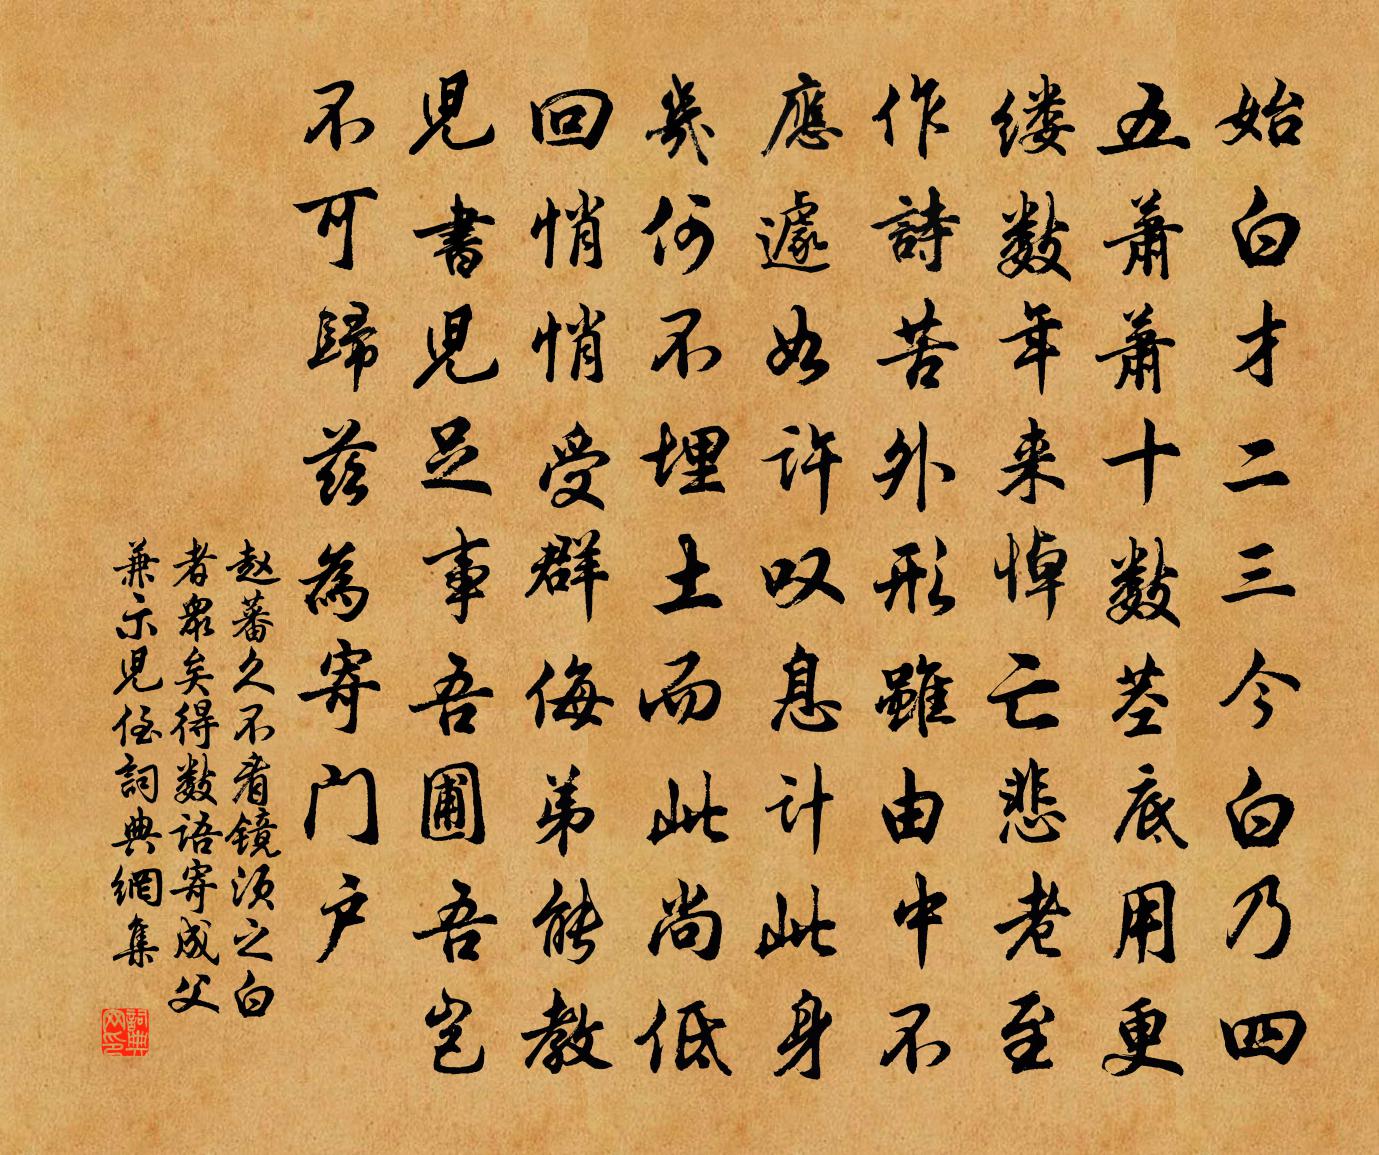 始白才二三今白乃四
五萧萧十数茎底用更
缕数年来悼亡悲老至
作詩苦外形雖由中不
應遽如许叹息计此身
幾何不埋土而此尚低
回悄悄受群侮弟能教
児書児足事吾圃吾岂
不可歸兹為寄门户
赵蕃久不看镜须之白
者眾矣得数语寄成父
兼示児侄詞典網集
詞典
网印